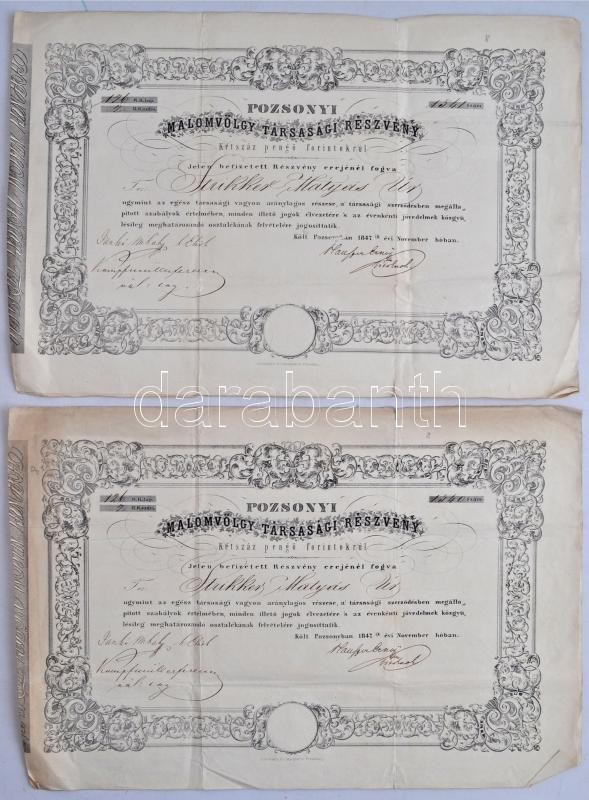 126 R.K.lap.
2. R.K.szám.
1541 Szám
POZSONYI
MALOMVÖLGY TÁRSASÁGI RÉSZVÉNY
Kétszáz pengő forintokrúl
Jelen befizetett Részvény erejénél fogva
Stukker Mátyás Úr
ugymint az egész társasági vagyon aránylagos részese, a' társasági szerződésben megálla„
pított szabályok értelmében, minden illető jogok élvezetére 's az évenkénti jövedelmek közgyű„
lésileg meghatározandó osztalékának felvételére jogosíttatik.
Költ Pozsonyban 1847ik évi November hóban.
darabanth
126 R.K.lap.
2. R.K.szám.
1540 Szám
POZSONYI
MALOMVÖLGY TÁRSASÁGI RÉSZVÉNY
Kétszáz pengő forintokrúl
Jelen befizetett Részvény erejénél fogva
Stukker Mátyás Úr
ugymint az egész társasági vagyon aránylagos részese, a' társasági szerződésben megálla„
pított szabályok értelmében, minden illető jogok élvezetére 's az évenkénti jövedelmek közgyű„
lésileg meghatározandó osztalékának felvételére jogosíttatik.
Költ Pozsonyban 1847ik évi November hóban.